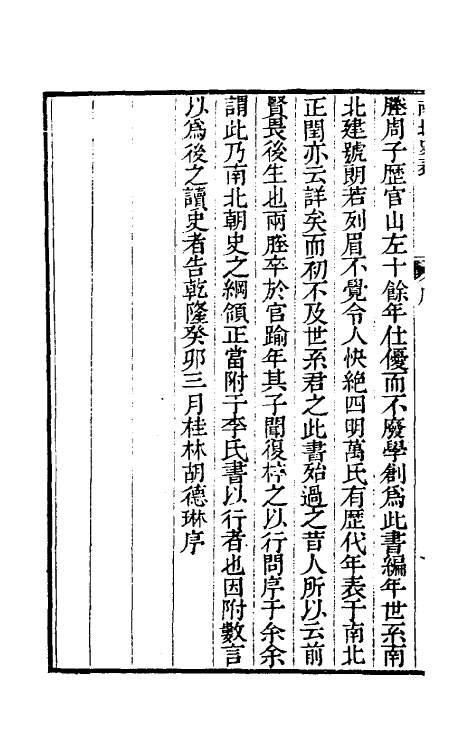 塍周子歷官山左十餘年仕優而不廢學創爲此書編年世系南
北建號朗若列眉不覺令人快絶四明萬氏有歷代年表于南北
正閏亦云詳矣而初不及世系君之此書殆過之昔人所以云前
賢畏後生也兩塍卒於官踰年其子聞復梓之以行問序于余余
謂此乃南北朝史之綱領正當附于李氏書以行者也因附數言
以爲後之讀史者告乾隆癸卯三月桂林胡德琳序